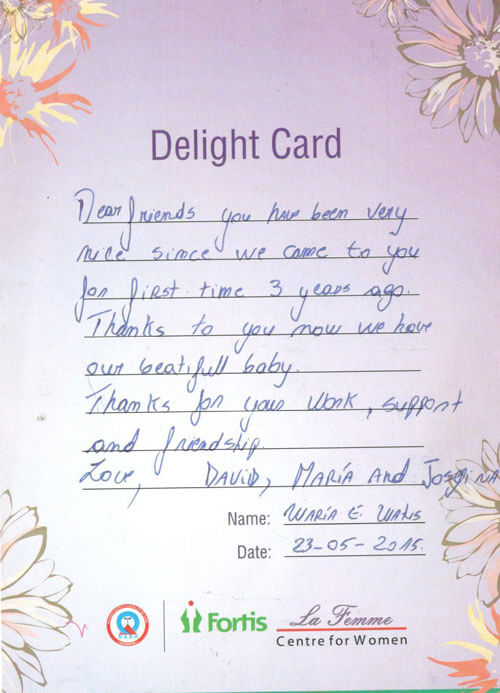 Delight Card
Dear friends you have been very
nice since we came to you
for first time 3 years ago.
Thanks to you now we have
our beatifull baby.
Thanks for your work, support
and friendship.
Love, DAVID, MARÍA AND
Name: MARÍA E.
Date: 23-05-2015.
Fortis La Femme
Centre for Women